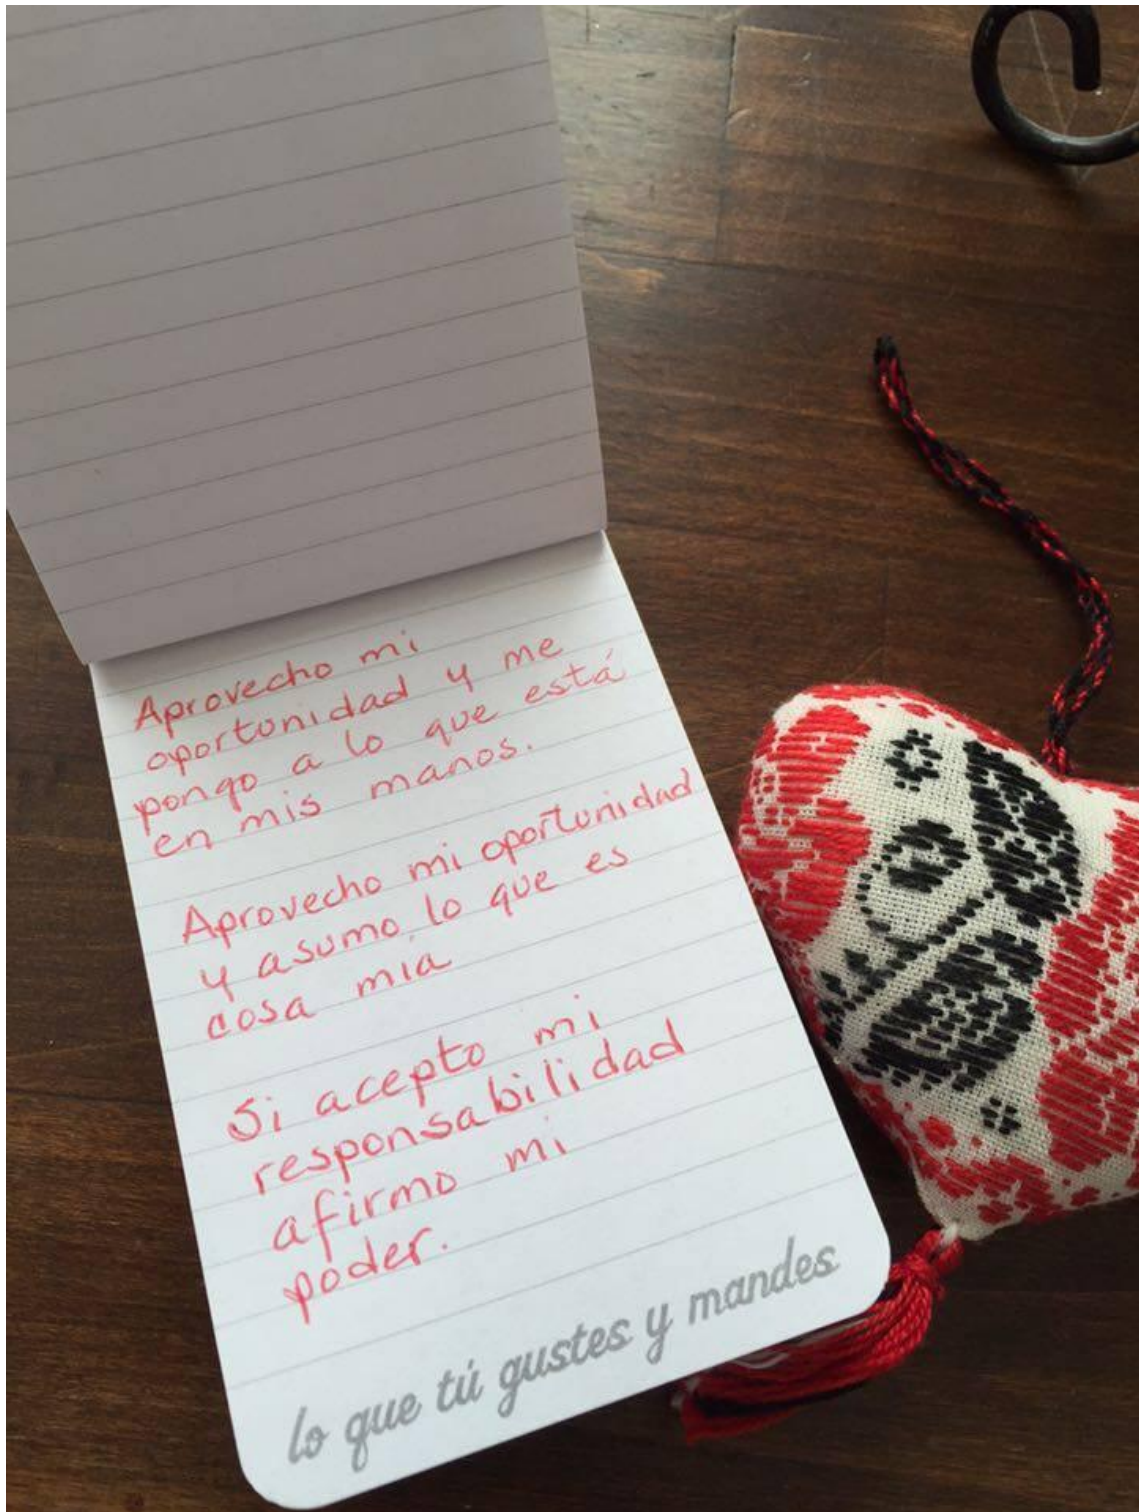 Aprovecho mi
oportunidad y me
pongo a lo que está
en mis manos.
Aprovecho mi oportunidad
y asumo lo que es
cosa mía
Si acepto mi
responsabilidad
afirmo mi
poder.
lo que tú gustes y mandes